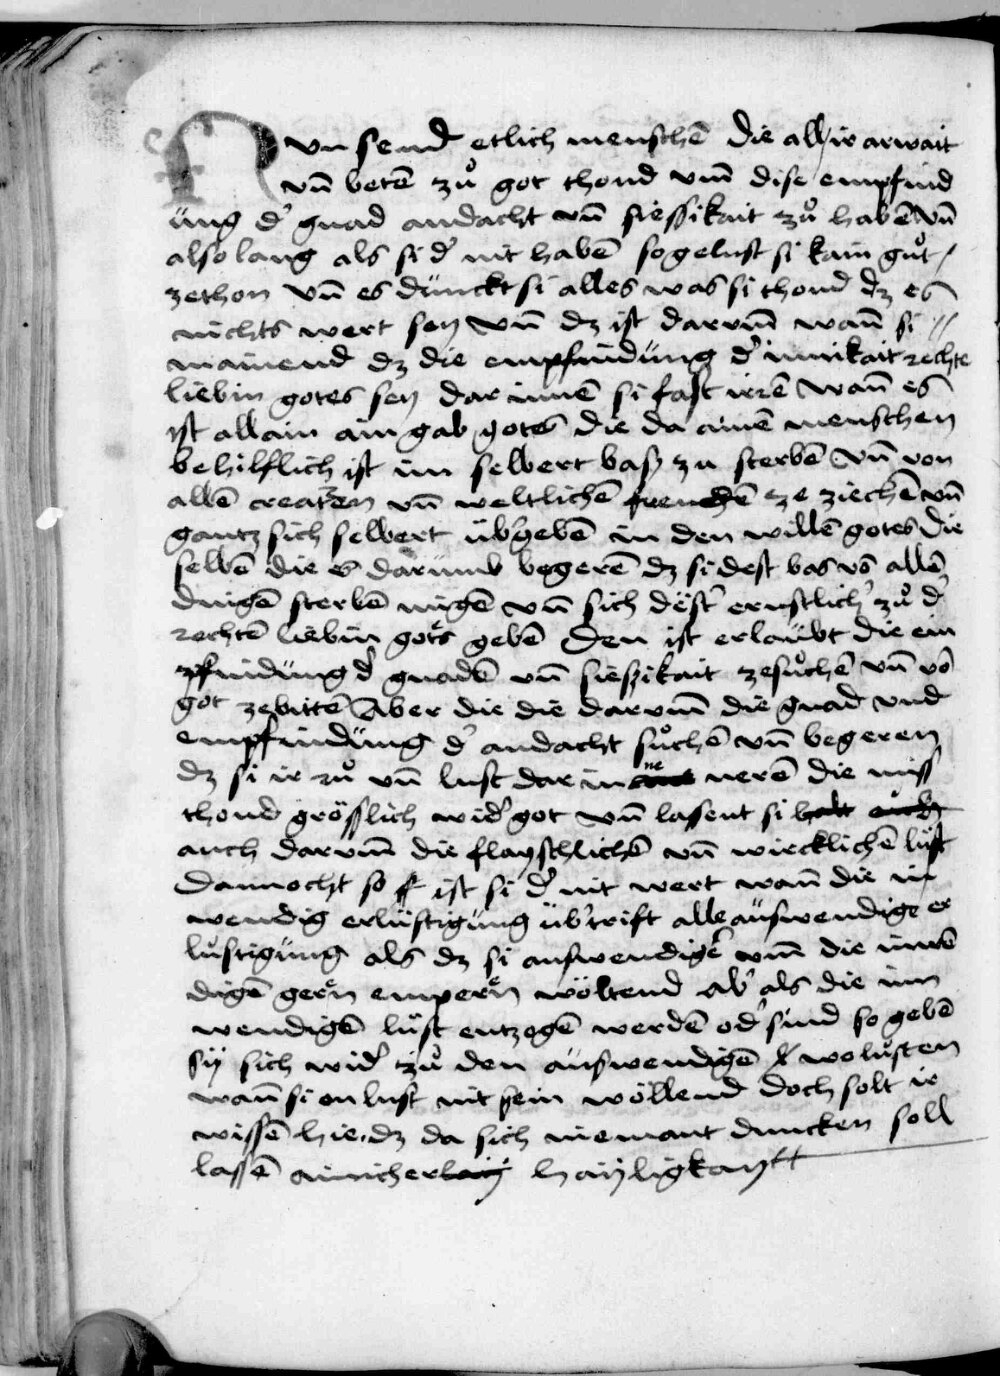 Nvn send etlich menschē die all ir arwait
vn̄ betē zů got thond vm̄ dise empfind
üng d' gnad andacht vn̄ siessikait zů habē vn̄
also lang als si d' nit habē so gelust si kain gůt
zethon vn̄ es dünckt si alles was si thond dz es
nichts wert seÿ vn̄ dz ist darvm̄ wan̄ si
mainend dz die empfindüng d' innikait rechte
liebin gotes seÿ dar innē si fast irrē wan̄ es
ist allain ain gab gotes die da ainē menschen
behilflich ist im selbert baß zu sterbē vn̄ von
allē creatꝛen vn̄ weltlichē freudē ze ziechē vn̄
gantz sich selbert üb'gebē in den willē gotes die
selbē die es darümb begerē dz si dest bas vō allē
dingē sterbē mügē vn̄ sich dëst' ernstlich' zů d'
rechtē liebin gots gebē den ist erlaubt die em
pfindüng d' gnadē vn̄ siessikait zesůchē vn̄ vō
got zebittē Aber die die darvm̄ die gnad vnd
empfindüng d' andacht sůchē vn̄ begeren
dz si ir rů vn̄ lust dar inne nerē die miss
thond grösslich wid' got vn̄ lassent si halt auch
auch darvm̄ die flayschlichē vn̄ wircklichē lüst
dannocht so ist si d' nit wert wan̄ die in
wendig erlüstigüng üb'trift alle auswendige er
lüstigüng als dz si auswendigē vm̄ die inwē
digē gern emperñ wöltend ab' als die inn
wendigē lüst entzogē werdē od' sind so gebē
sÿ sich wid' zů den auswendigē wolüsten
wan̄ si on lust nit sein wöllend doch solt ir
wissē hie dz da sich niemant duncken soll
lassē ainicherlaÿ haÿligkaÿtt